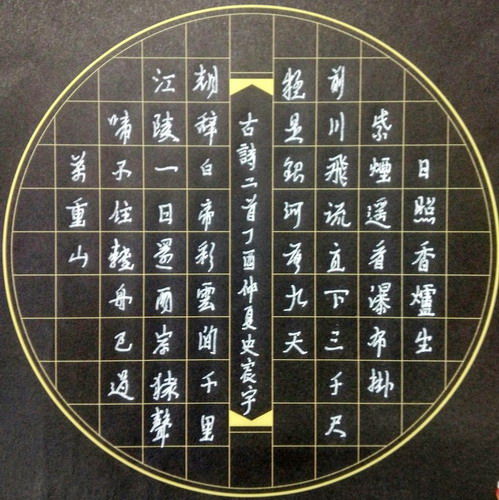 日照香爐生
紫煙遥看瀑布掛
前川飛流直下三千尺
疑是銀河落九天
古詩二首丁酉仲夏史宸宇
朝辭白帝彩雲間千里
江陵一日還兩岸猿聲
啼不住輕舟已過
萬重山